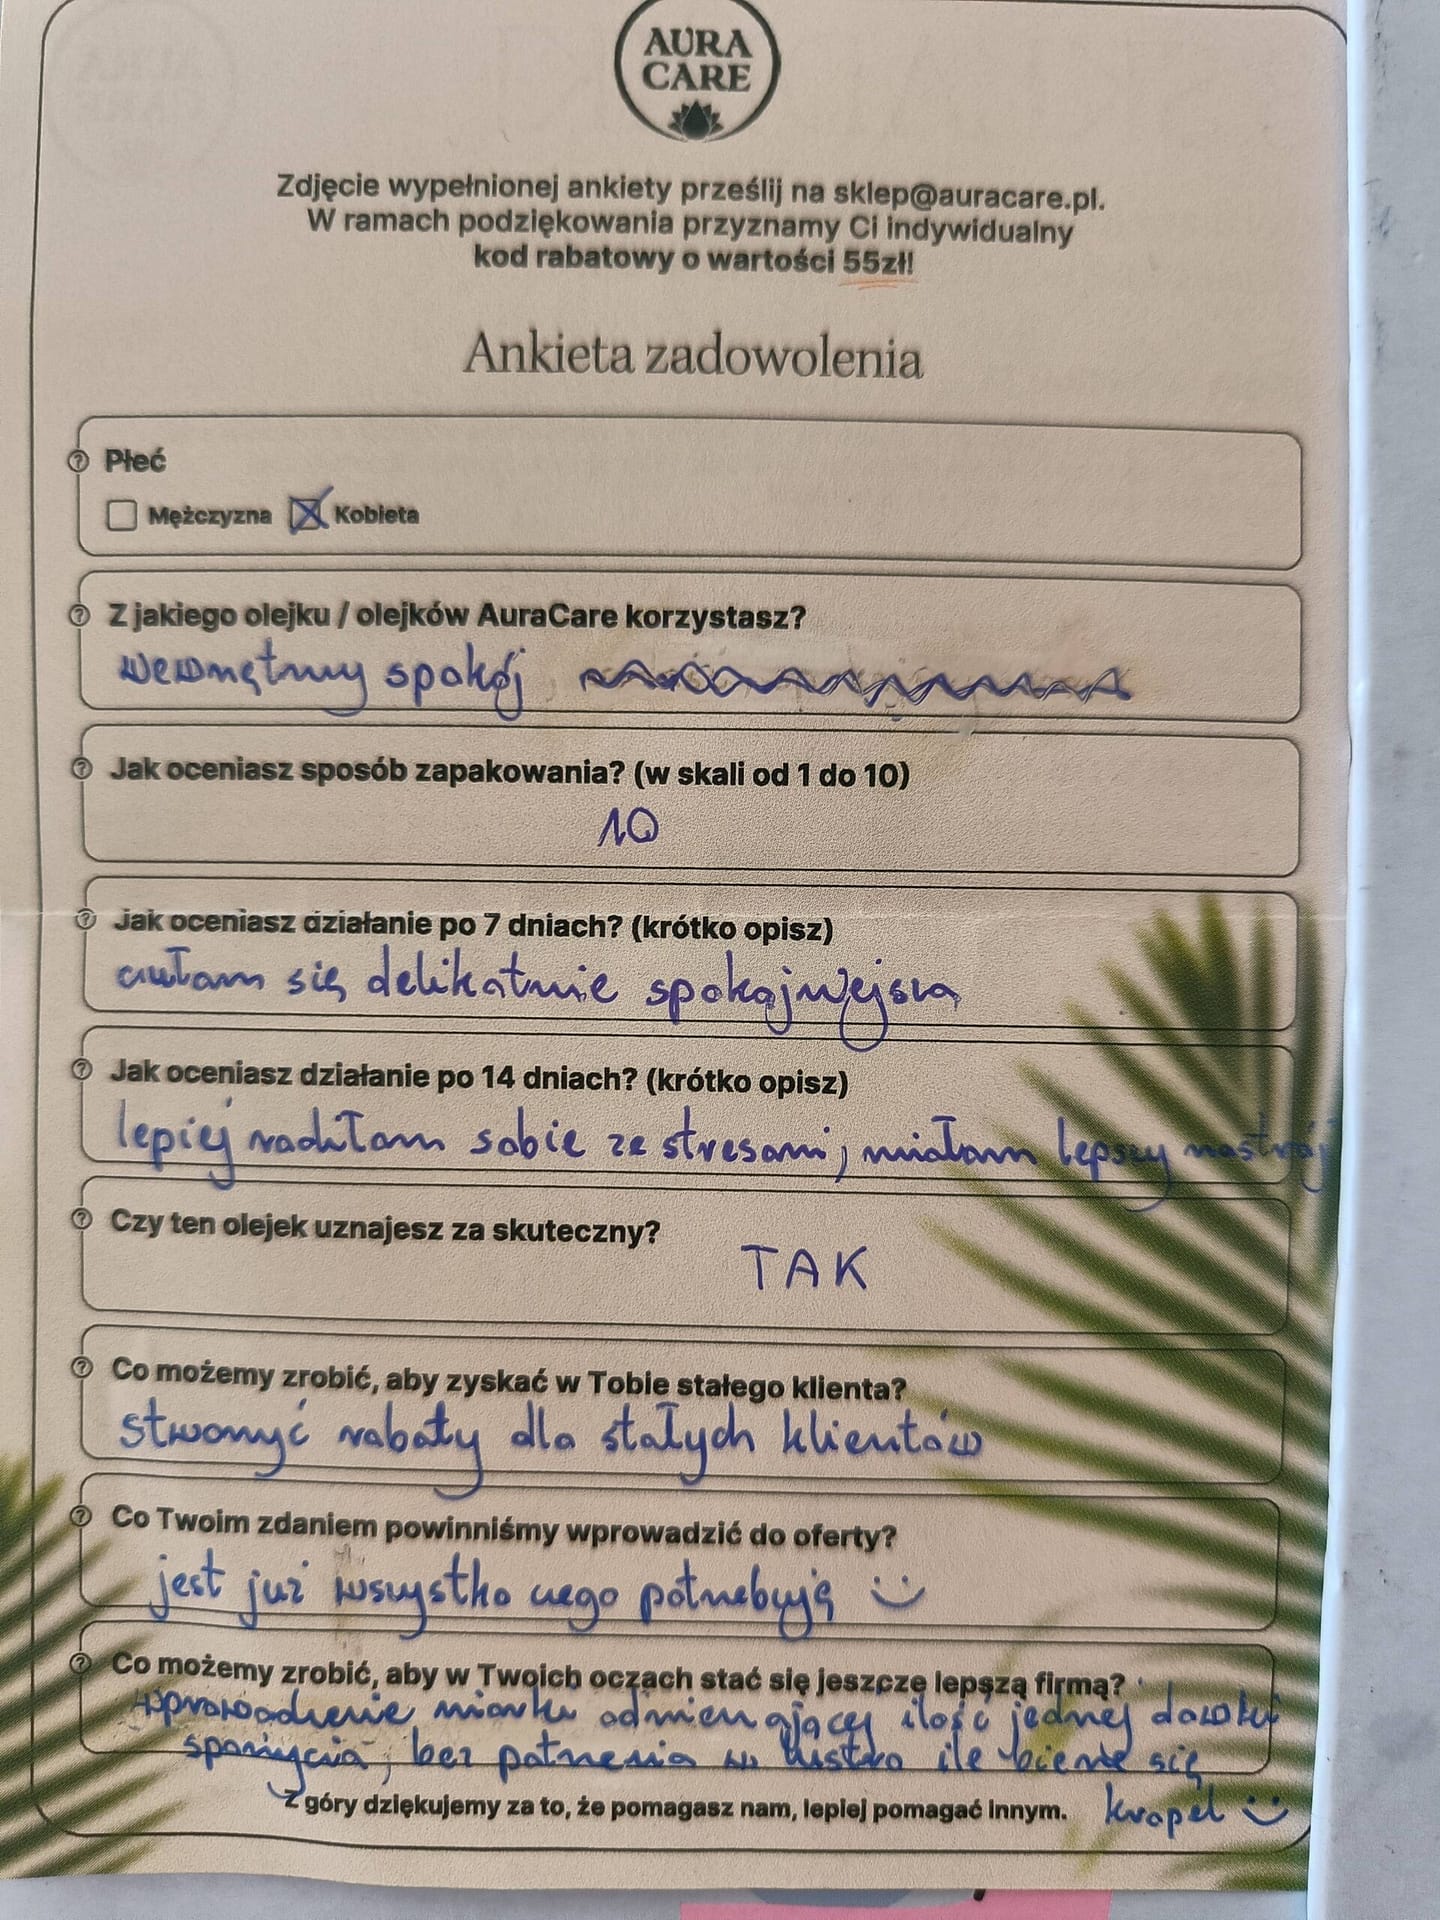 AURA
CARE
Zdjęcie wypełnionej ankiety prześlij na sklep@auracare.pl.
W ramach podziękowania przyznamy Ci indywidualny
kod rabatowy o wartości 55zł!
Ankieta zadowolenia
Płeć
Mężczyzna Kobieta
Z jakiego olejku / olejków AuraCare korzystasz?
wewnętrzny spokój
Jak oceniasz sposób zapakowania? (w skali od 1 do 10)
10
Jak oceniasz działanie po 7 dniach? (krótko opisz)
czułam się delikatnie spokojniejsza
Jak oceniasz działanie po 14 dniach? (krótko opisz)
lepiej radziłam sobie ze stresami, miałam lepszy nastrój
Czy ten olejek uznajesz za skuteczny?
TAK
Co możemy zrobić, aby zyskać w Tobie stałego klienta?
stworzyć rabaty dla stałych klientów
Co Twoim zdaniem powinniśmy wprowadzić do oferty?
jest już wszystko czego potrzebuję :)
Co możemy zrobić, aby w Twoich oczach stać się jeszcze lepszą firmą?
wprowadzenie miarki odmierzającej ilość jednej dawki
spożycia, bez patrzenia w lustro ile bierze się
Z góry dziękujemy za to, że pomagasz nam, lepiej pomagać innym. kropel :)